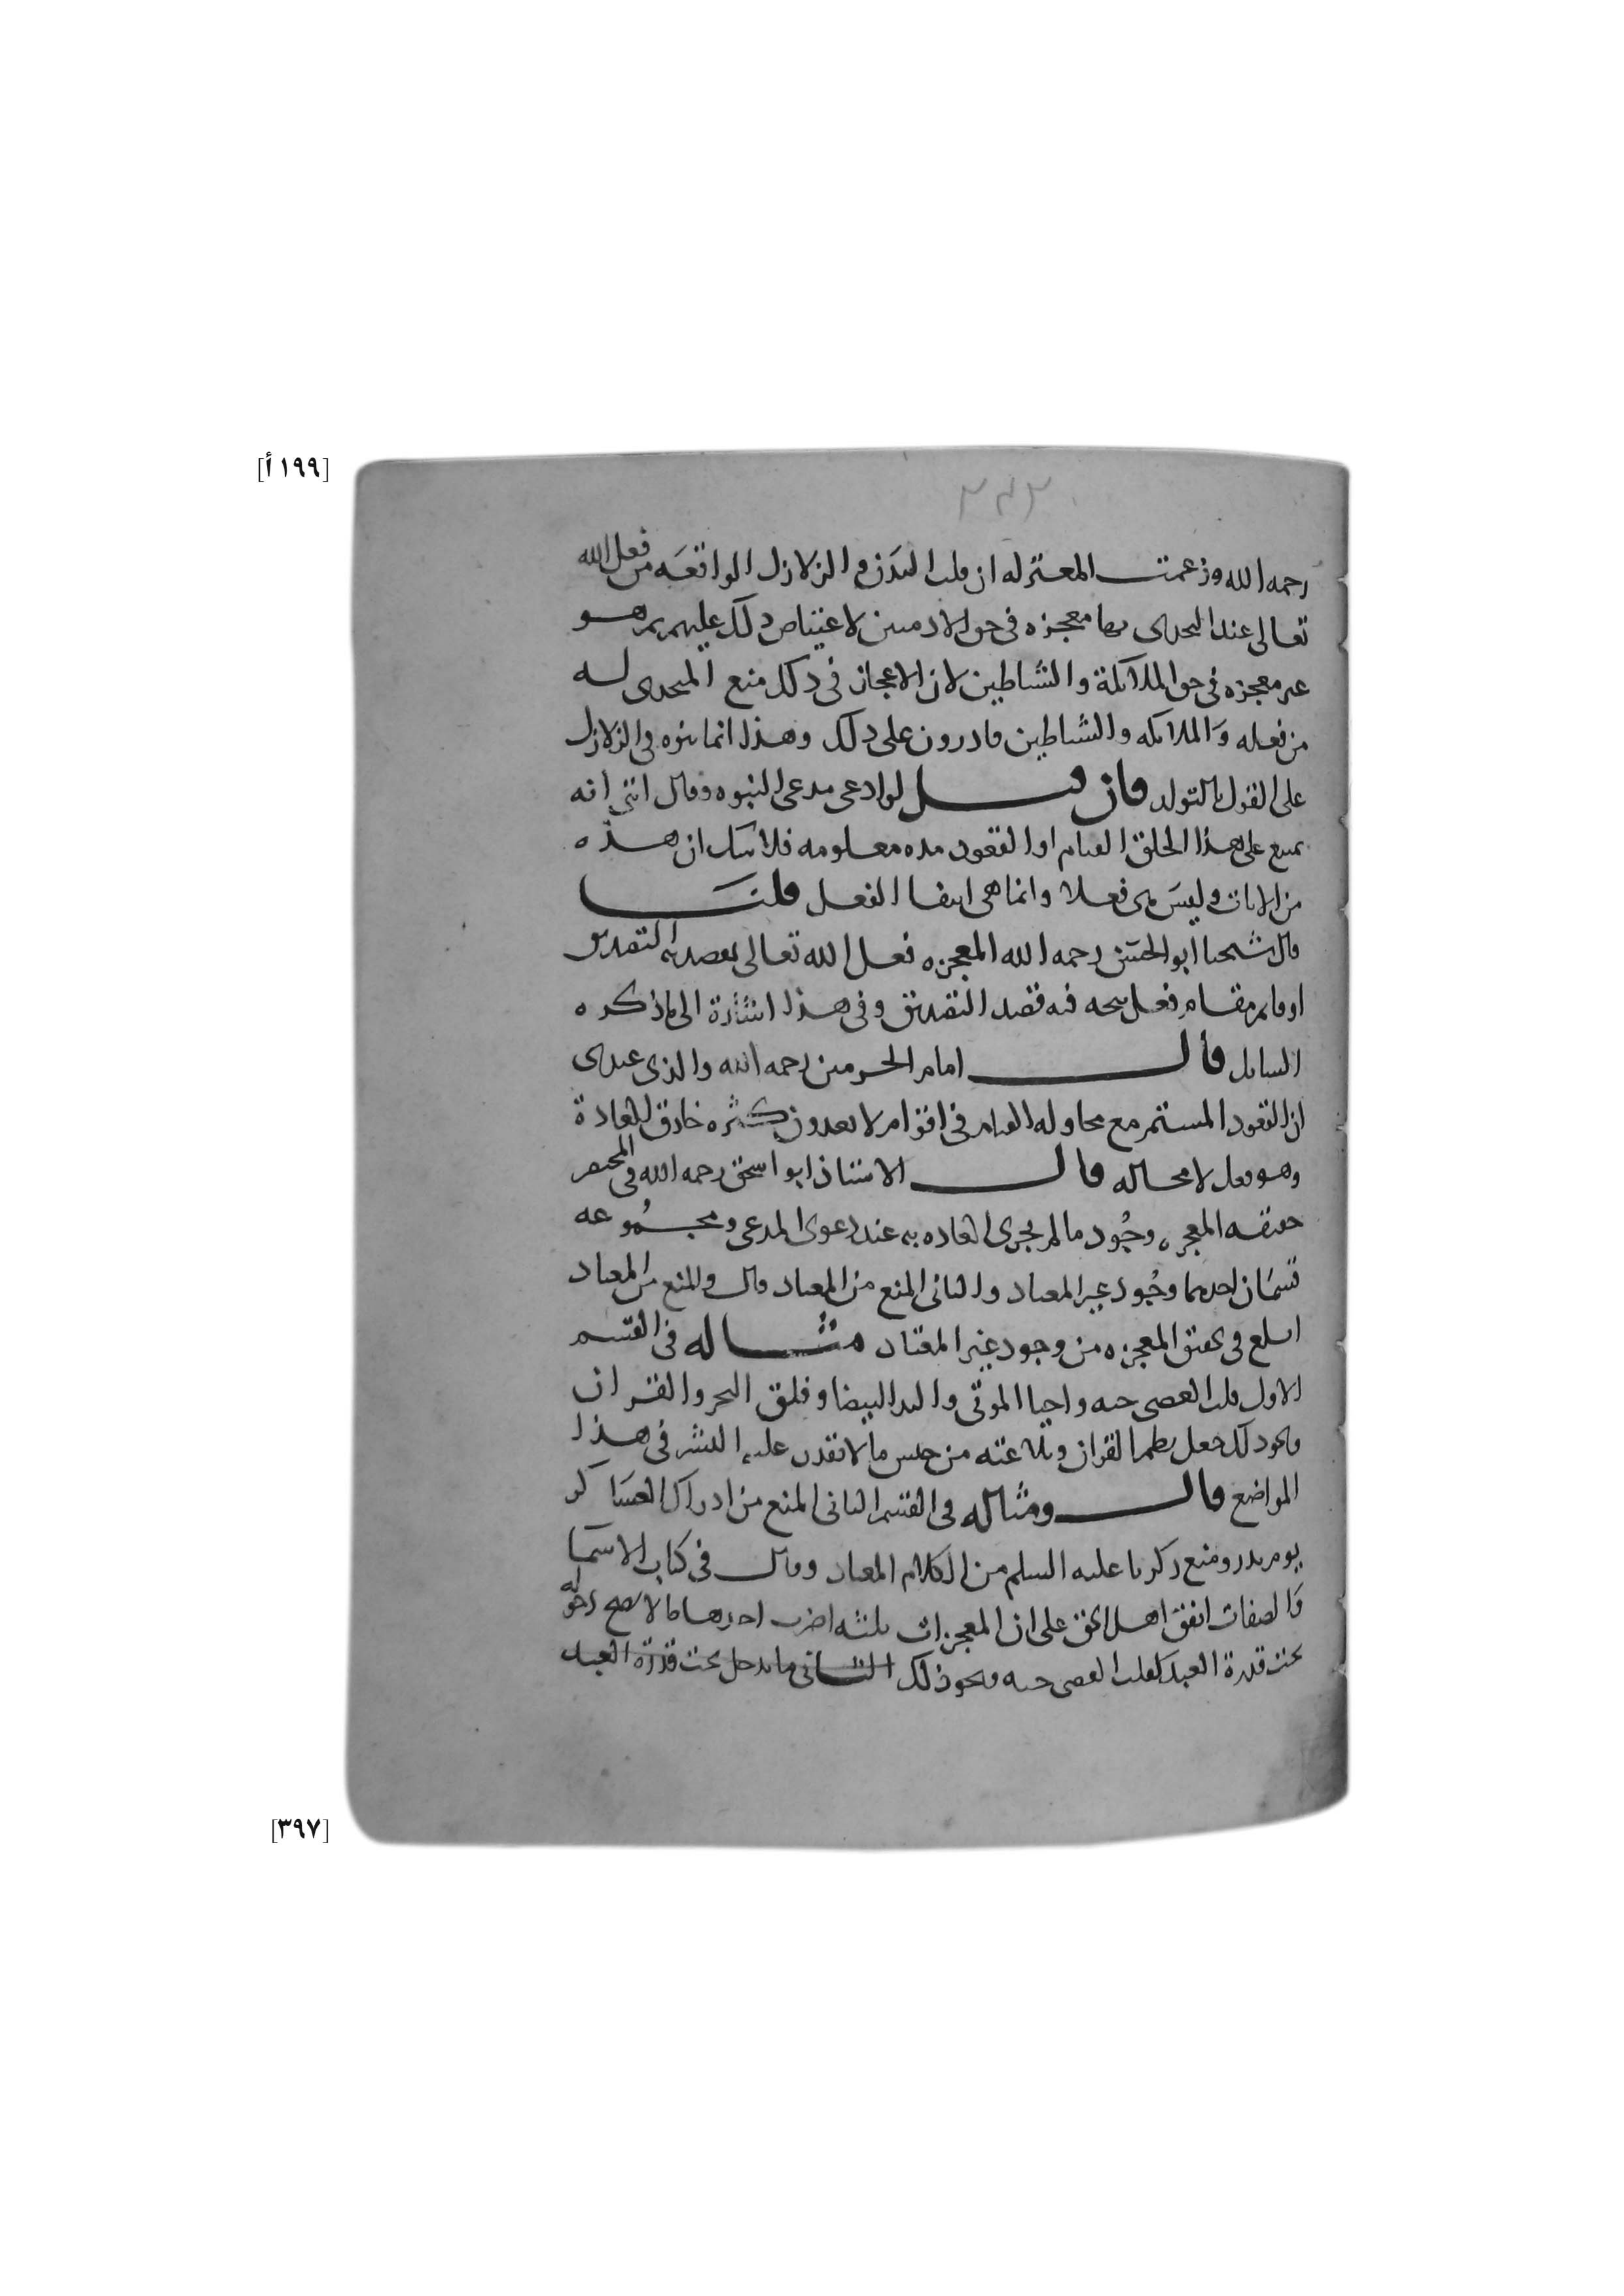 [١٩٩ أ]
٣٤٣
رحمه الله وزعمت المعتزله ان قلب المدن والزلازل الواقعه من فعل الله
تعالى عند التحدى بها معجزه فى حق الادميين لاعتياص ذلك عليهم ثم هو
غير معجزه فى حق الملائكة والشياطين لان الاعجاز فى ذلك منع المتحدى له
من فعله والملائكه والشياطين قادرون على ذلك وهذا انما بنوه فى الزلازل
على القول بالتولد فان قيل لو ادعى مدعى النبوه وقال ايتى انه
يمتنع على هذا الخلق القيام او القعود مده معلومه فلا شك ان هذه
من الايات وليس هى فعلا وانما هى انتفا الفعل قلنا
قال شيخنا ابو الحسن رحمه الله المعجزه فعل الله تعالى يقصد به التصديق
او قايم مقام فعل يتجه فيه قصد التصديق وفى هذا اشارة الى ما ذكره
السايل قال امام الحرمين رحمه الله والذى عندى
ان القعود المستمر مع محاوله القيام فى اقوام لا يعدون كثره خارق للعادة
وهو فعل لا محاله قال الاستاذ ابو اسحق رحمه الله فى المختصر
حقيقه المعجزه وجود ما لم يجرى العاده به عند دعوى المدعى ومجموعه
قسمان احدهما وجود غير المعتاد والثانى المنع من المعتاد قال والمنع من المعتاد
ابلغ فى تحقق المعجزه من وجود غير المعتاد مثاله فى القسم
الاول قلب العصى حيه واحيا الموتى واليد البيضا وفلق البحر والقران
ونحو ذلك جعل نظم القران وبلاغته من جنس ما لا تقدر عليه البشر فى هذا
المواضع قال ومثاله فى القسم الثانى المنع من ادراك العساكر
يوم بدر ومنع زكريا عليه السلم من الكلام المعتاد وقال فى كتاب الاسما
والصفات اتفق اهل الحق على ان المعجزات ثلثه اضرب احدها ما لا يصح دخوله
تحت قدرة العبد كقلب العصى حيه ونحو ذلك الثانى ما يدخل تحت قدرة العبد
[٣٩٧]